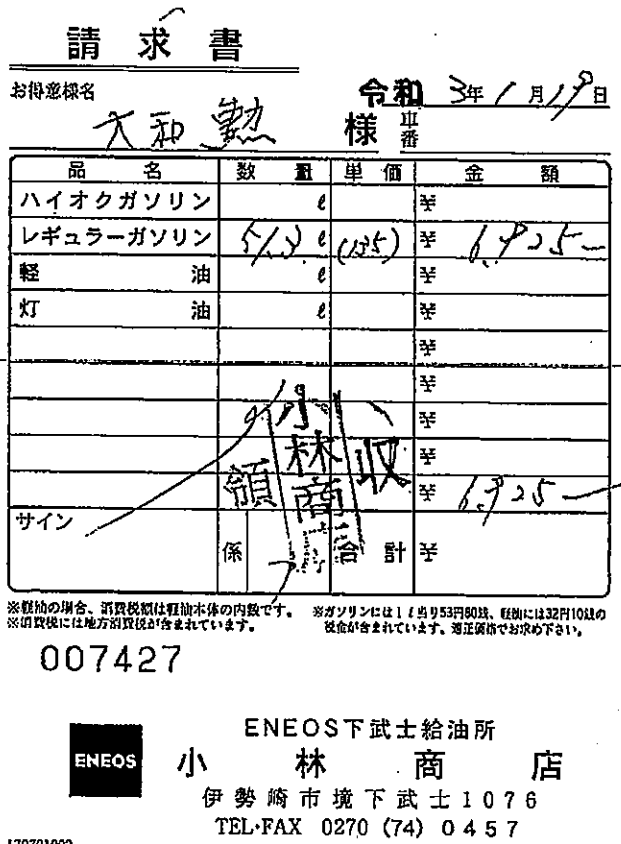 請求書
お得意様名
令和 3年 1月19日
大和 勲 様 車番
品名 数量 単価 金額
ハイオクガソリン ℓ ¥
レギュラーガソリン 51.3 ℓ (135) ¥ 6,925―
軽油 ℓ ¥
灯油 ℓ ¥
¥
¥
¥
¥
¥ 6,925―
領 小林商 収
サイン
係 合計 ¥
※軽油の場合、消費税額は軽油本体の内数です。
※消費税には地方消費税が含まれています。
※ガソリンには1ℓ当り53円80銭、軽油には32円10銭の
税金が含まれています。適正価格でお求め下さい。
007427
ENEOS
ENEOS下武士給油所
小林商店
伊勢崎市境下武士1076
TEL・FAX 0270 (74) 0457